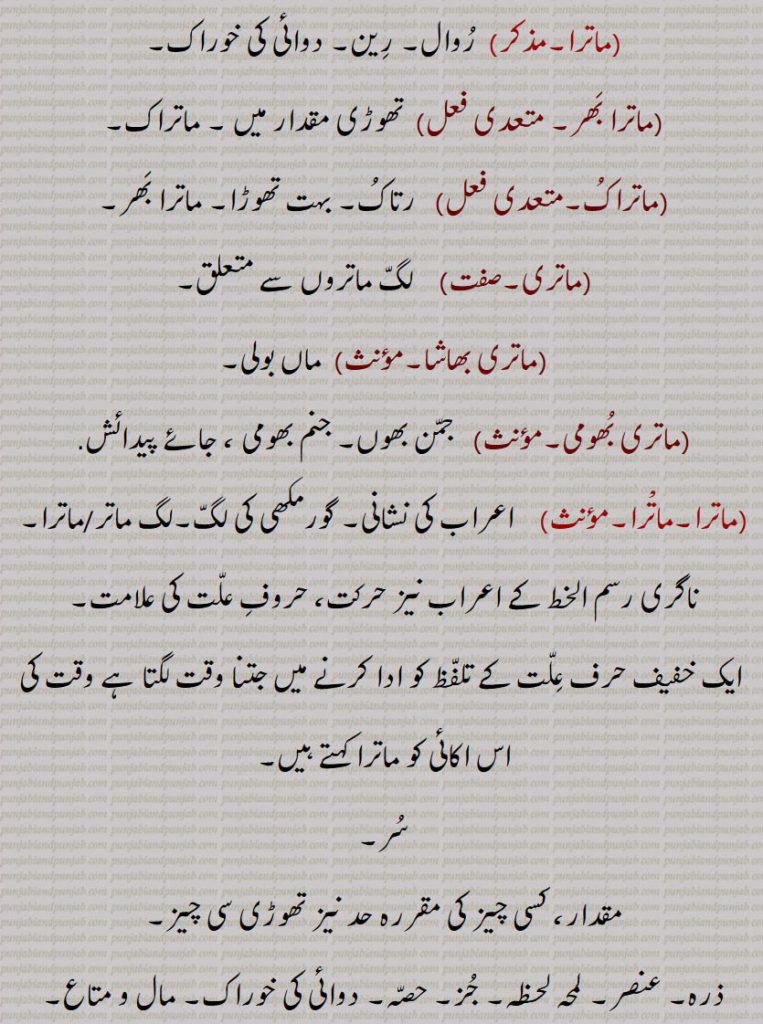 (ماترا۔مذکر) رُوال۔ رِین۔ دوائی کی خوراک۔
(ماترا بَھر۔ متعدی فعل) تھوڑی مقدار میں ۔ ماتراک۔
(ماتراکُ۔متعدی فعل) رتاکُ۔ بہت تھوڑا۔ ماترا بَھر۔
(ماتری۔صفت) لگّ ماتروں سے متعلق۔
(ماتری بھاشا۔مؤنث) ماں بولی۔
(ماتری بُھومی۔مؤنث) جمّن بھوں۔ جنم بھومی ، جائے پیدائش.
(ماترا۔ماتُرا۔مؤنث) اعراب کی نشانی۔ گورمکھی کی لگّ۔لگ ماتر/ماترا۔
ناگری رسم الخط کے اعراب نیز حرکت، حروفِ علّت کی علامت۔
ایک خفیف حرف عِلّت کے تلفّظ کو ادا کرنے میں جتنا وقت لگتا ہے وقت کی
اس اکائی کو ماترا کہتے ہیں۔
سُر۔
مقدار، کسی چیز کی مقررہ حد نیز تھوڑی سی چیز۔
ذرہ۔ عنصر۔ لمحہ لحظہ۔ جُز۔ حصّہ۔ دوائی کی خوراک۔ مال و متاع۔